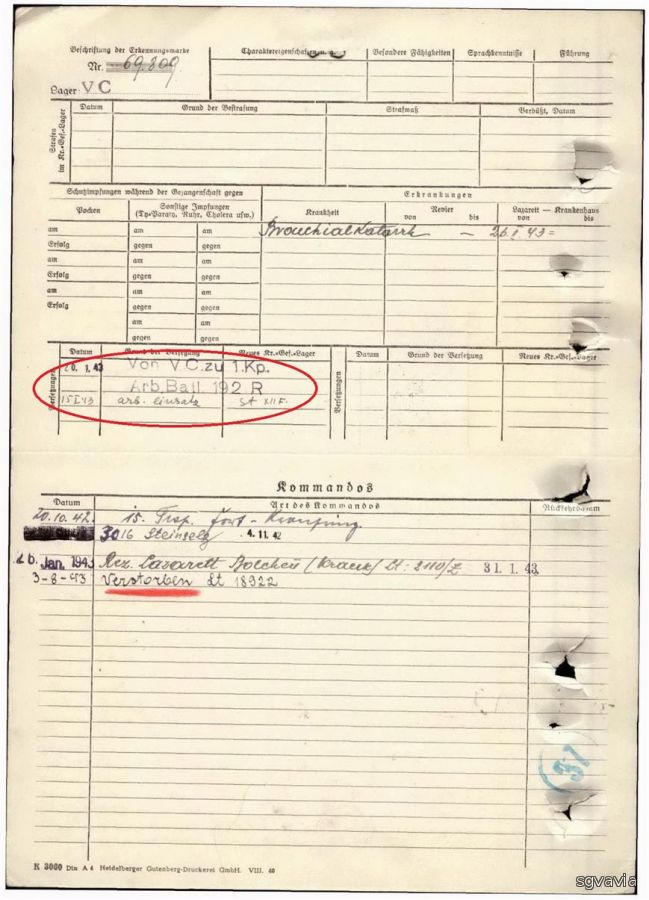 Beschriftung der Erkennungsmarke
Nr. 69.809.
Lager V C
Charaktereigenschaften
Besondere Fähigkeiten
Sprachkenntnisse
Führung
Strafen im Kr.-Gef.-Lager
Datum
Grund der Bestrafung
Strafmaß
Verbüßt, Datum
Schutzimpfungen während der Gefangenschaft gegen
Erkrankungen
Pocken
Sonstige Impfungen
(Ty.-Parato, Ruhr, Cholera usw.)
Krankheit
Revier
von bis
Lazarett — Krankenhaus
von bis
am am am
Bronchialkatarrh – 26. I 43 =
Erfolg gegen gegen
am am am
Erfolg gegen gegen
am am am
Erfolg gegen gegen
am am am
Erfolg gegen gegen
am am
gegen gegen
Versetzungen
Datum
Grund der Versetzung
Neues Kr.-Gef.-Lager
Versetzungen
Datum
Grund der Versetzung
Neues Kr.-Gef.-Lager
20. 1. 43 Von V.C. zu 1. Kp.
Arb. Batl. 192 R
arb. einsatz St XII F.
Kommandos
Datum
Art des Kommandos
Rückkehrdatum
20.10.42. 15.
3016 4. 11. 42
26. Jan. 1943 Res. Lazarett Bolchen (krank) Lt: 2110/Z 31. 1. 43.
3-8-43 Verstorben Lt 18922
31
K 3000 Din A 4 Heidelberger Gutenberg-Druckerei GmbH. VIII. 40
sgvavia